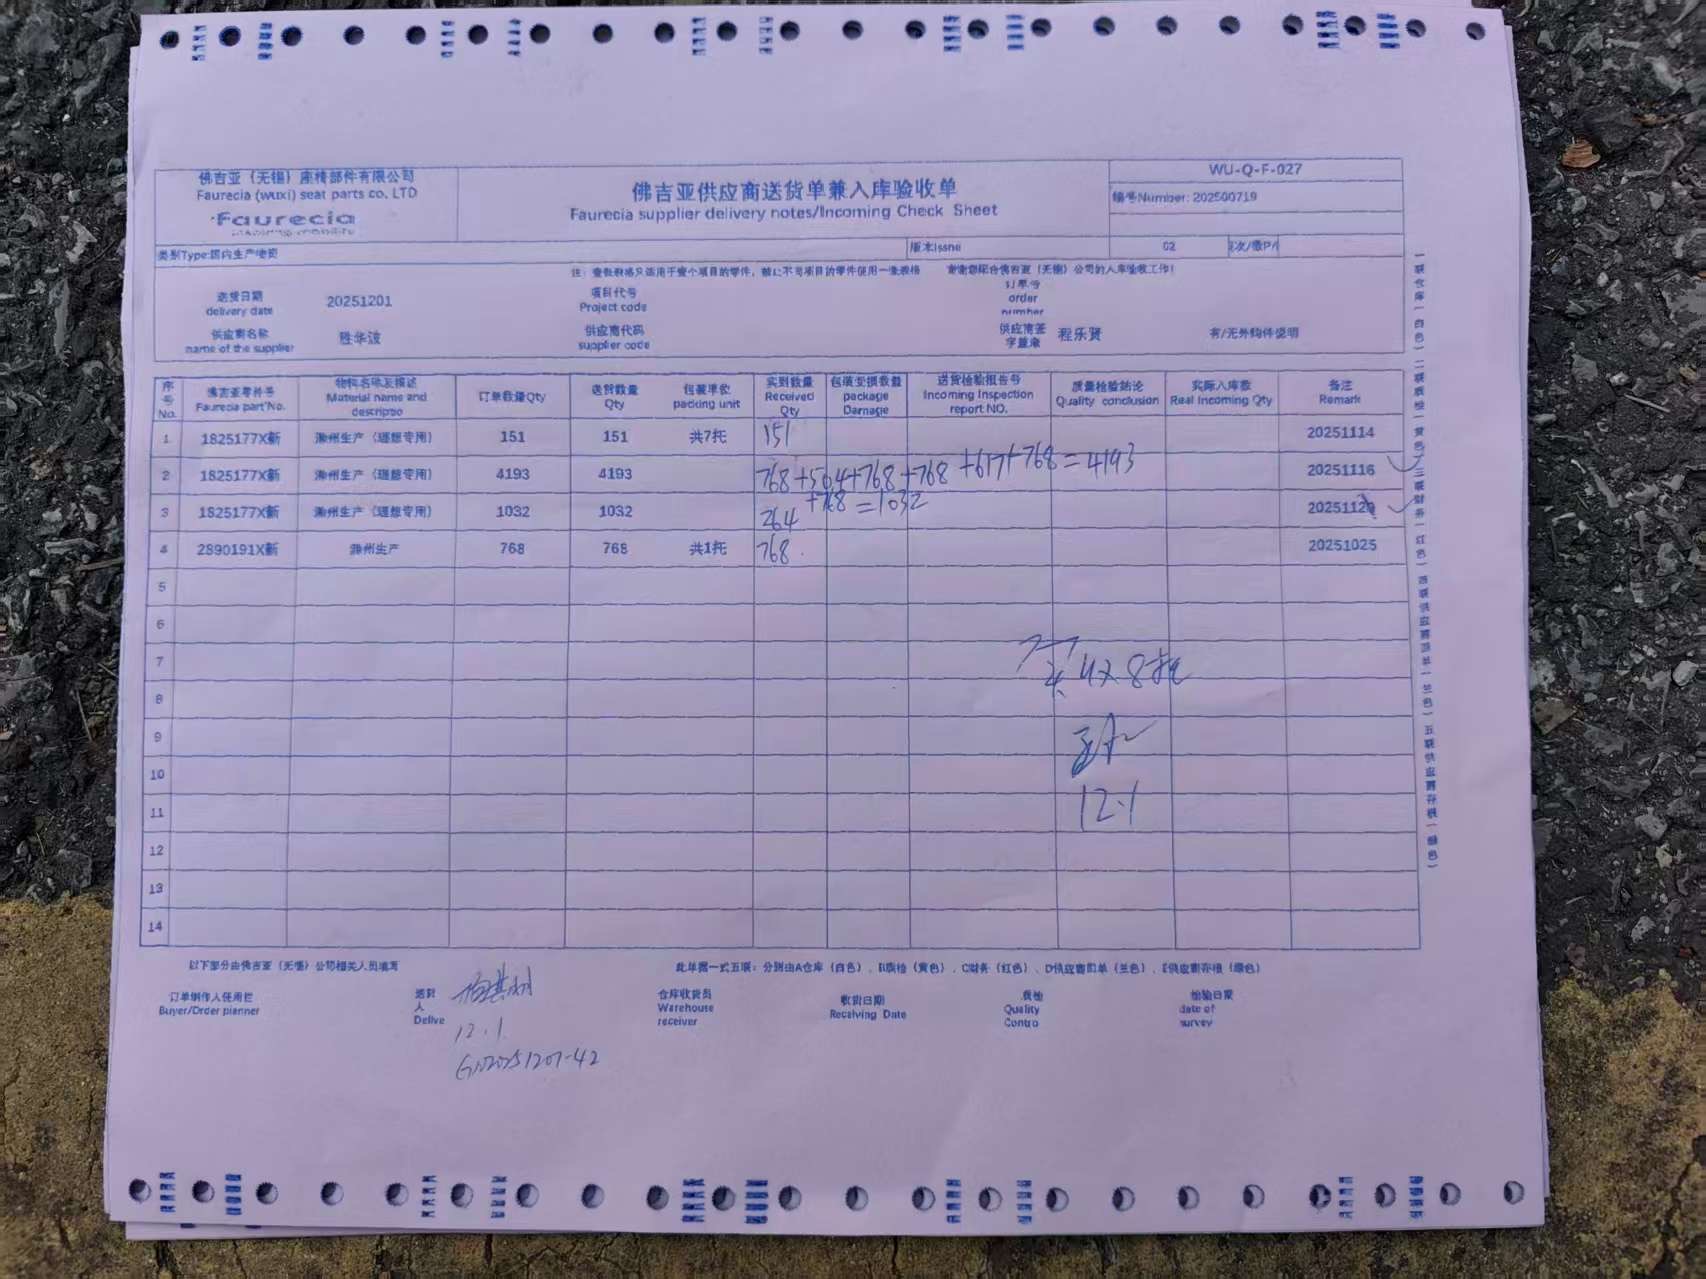 佛吉亚（无锡）座椅部件有限公司
Faurecia (wuxi) seat parts co. LTD
Faurecia
佛吉亚供应商送货单兼入库验收单
Faurecia supplier delivery notes/Incoming Check Sheet
WU-Q-F-027
编号Number: 202500719
类别Type:国内生产物资
版本Issne
02
注：
谢谢您配合佛吉亚（无锡）公司的入库验收工作！
送货日期
delivery date
20251201
项目代号
Project code
订单号
order
number
供应商名称
name of the supplier
胜华波
供应商代码
supplier code
供应商签
字盖章
程乐贤
有/无外购件说明
序号No.
佛吉亚零件号 Faurecia part No.
物料名称及描述 Material name and descriptio
订单数量Qty
送货数量 Qty
包装单位 packing unit
实到数量 Received Qty
包装受损数量 package Damage
送货检验报告号 Incoming Inspection report NO.
质量检验结论 Quality conclusion
实际入库数 Real Incoming Qty
备注 Remark
1 1825177X新 滁州生产（理想专用） 151 151 共7托 151 20251114
2 1825177X新 滁州生产（理想专用） 4193 4193 768+504+768+768+617+768=4193 20251116
3 1825177X新 滁州生产（理想专用） 1032 1032 264+768=1032 20251120
4 2890191X新 滁州生产 768 768 共1托 768 20251025
5
6
7
8
9
10
11
12
13
14
8托
12.1
以下部分由佛吉亚（无锡）公司相关人员填写
此单据一式五联：分别由A仓库（白色）、B质检（黄色）、C财务（红色）、D供应商回单（兰色）、E供应商存根（绿色）
订单制作人使用栏
Buyer/Order planner
送货人
Delive
12.1
仓库收货员
Warehouse
receiver
收货日期
Receiving Date
质检
Quality
Contro
检验日期
date of
survey